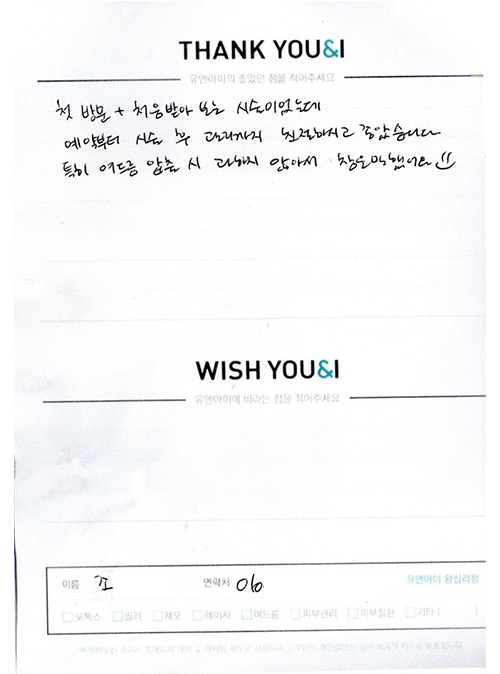 THANK YOU&I
유앤아이의 좋았던 점을 적어주세요
첫 방문 + 처음받아 보는 시술이었는데
예약부터 시술 후 관리까지 친절하시고 좋았습니다
특히 여드름 압출 시 과하지 않아서 참을만했어요
WISH YOU&I
유앤아이에 바라는 점을 적어주세요
이름 조 연락처 06 유앤아이 왕십리점
보톡스 필러 제모 레이저 여드름 피부관리 피부질환 기타 ( )